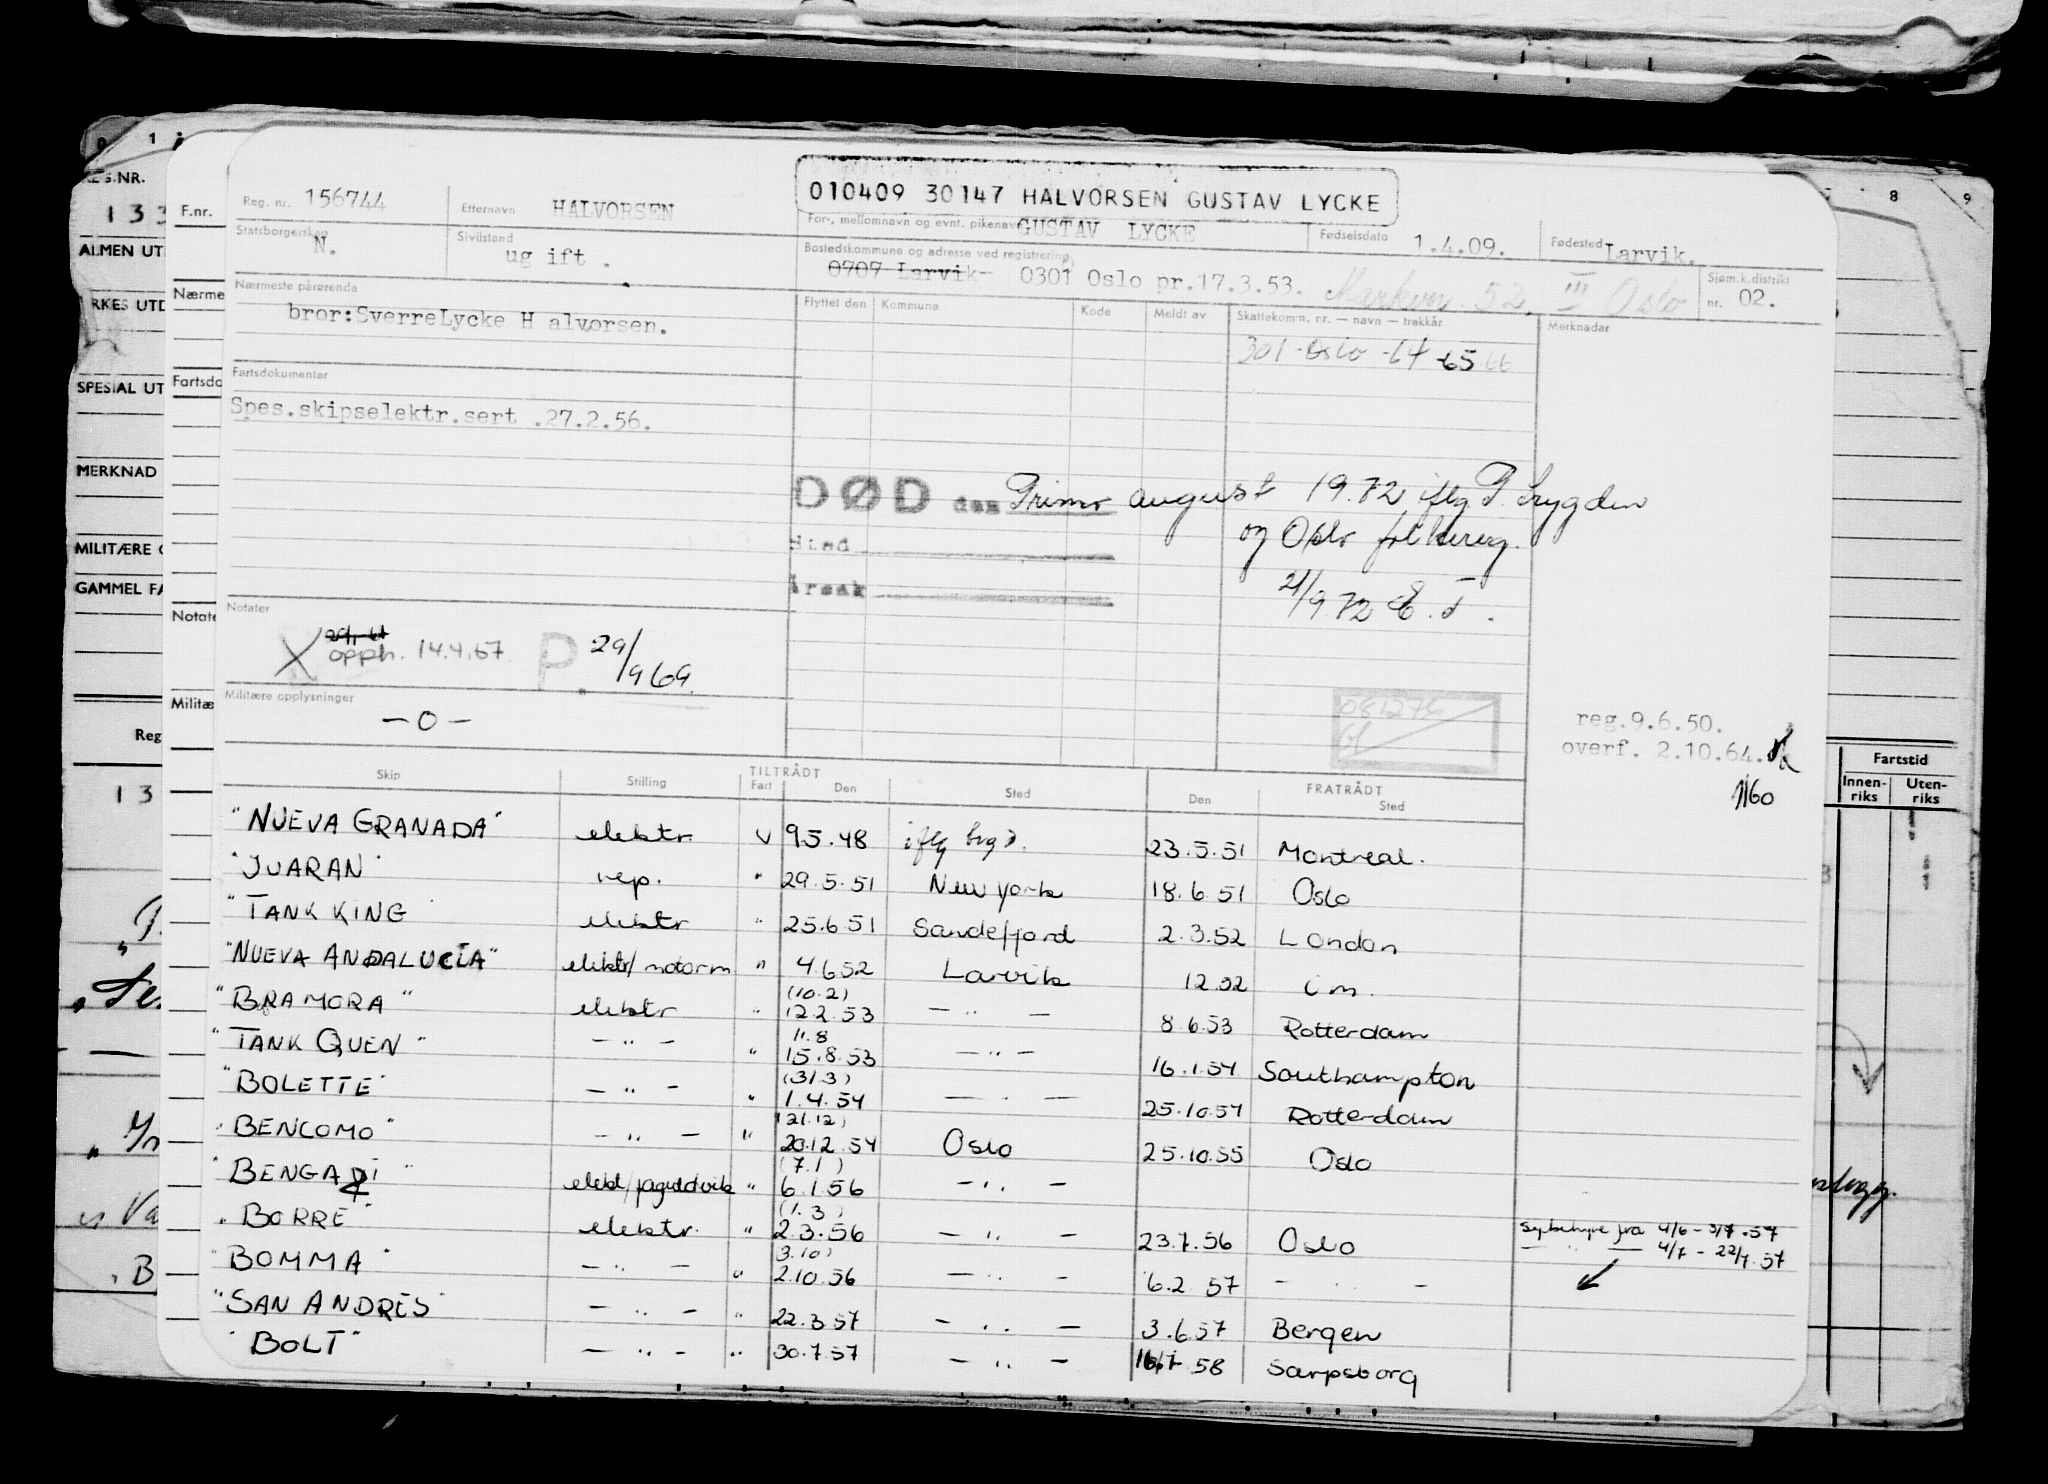 0 1 8 9
REG.NR.
133
ALMEN UT
YRKES UTD
SPESIAL UT
MERKNAD
MILITÆRE
GAMMEL FA
Reg
13
F.nr.
Nærme
Fartsdo
Notate
Militæ
Fartstid
Innen-riks Uten-riks
010409 30147 HALVORSEN GUSTAV LYCKE
Reg. nr. 156744 Etternavn HALVORSEN For-, mellomnavn og evnt. pikenavn GUSTAV LYCKE Fødselsdato 1.4.09. Fødested Larvik.
Statsborgerskap N. Sivilstand ug ift . Bostedskommune og adresse ved registrering 0707 Larvik- 0301 Oslo pr.17.3.53. Markvn 52. III Oslo Sjøm.k.distrikt nr. 02.
Nærmeste pårørende
bror:SverreLycke H alvorsen.
Flyttet den Kommune Kode Meldt av Skattekomm. nr. — navn — trekkår Merknader
301-Oslo-64 65 66
Fartsdokumenter
Spes.skipselektr.sert .27.2.56.
DØD den Primo august 1972 iflg. P. Lygden
Sted og Oslo folkereg.
Årsak 21/9.72 E.T.
Notater
X opph. 14.4.67. P. 29/9 69.
Militære opplysninger
— 0 —
081276
reg.9.6.50.
overf. 2.10.64.
1160
TILTRÅDT FRATRÅDT
Skip Stilling Fart Den Sted Den Sted
"NUEVA GRANADA" elektr. v 9.5.48 iflg. 23.5.51 Montreal.
"JUARAN" rep. " 29.5.51 New York 18.6.51 Oslo
"TANK KING elektr " 25.6.51 Sandefjord 2.3.52 London
"NUEVA ANDALUCIA" elektr/motorm " 4.6.52 Larvik 12.52 i m.
"BRAMORA" elektr " (10.2) 12.2.53 — " — 8.6.53 Rotterdam
"TANK QUEN" — " — " 11.8 15.8.53 — " — 16.1.54 Southampton
"BOLETTE" — " — " (31.3) 1.4.54 — " — 25.10.54 Rotterdam
"BENCOMO" — " — " (21.12) 20.12.54 Oslo 25.10.55 Oslo
"BENGAZI" " (7.1) 6.1.56 — " —
"BORRE" elektr. " (1.3) 2.3.56 — " — 23.7.56 Oslo
"BOMMA" — " — " 3.10) 2.10.56 — " — 6.2.57 — " —
"SAN ANDRES" — " — " 22.3.57 — " — 3.6.57 Bergen
"BOLT" — " — " 30.7.57 — " — 58 Sarpsborg
sykehyre fra 4/6 - 3/7.57
— " — 4/7 - 22/7.57